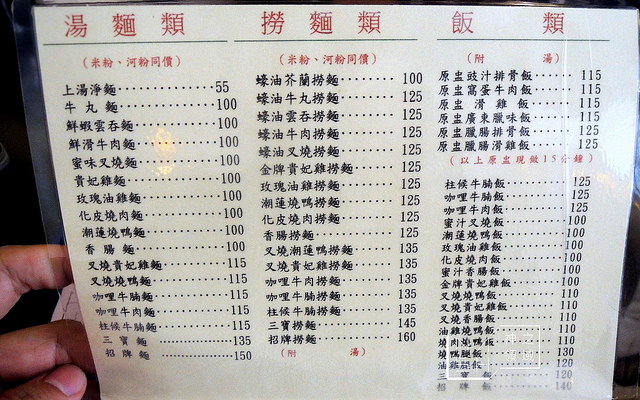 湯麵類
(米粉、河粉同價)
上湯淨麵 55
牛丸麵 100
鮮蝦雲吞麵 100
鮮滑牛肉麵 100
蜜味叉燒麵 100
貴妃雞麵 100
玫瑰油雞麵 100
化皮燒肉麵 100
潮蓮燒鴨麵 100
香腸麵 100
叉燒貴妃雞麵 115
叉燒燒鴨麵 115
咖哩牛腩麵 115
咖哩牛肉麵 115
柱候牛腩麵 115
三寶麵 135
招牌麵 150
撈麵類
(米粉、河粉同價)
蠔油芥蘭撈麵 100
蠔油牛丸撈麵 125
蠔油雲吞撈麵 125
蠔油牛肉撈麵 125
蠔油叉燒撈麵 125
金牌貴妃雞撈麵 125
玫瑰油雞撈麵 125
潮蓮燒鴨撈麵 125
化皮燒肉撈麵 125
香腸撈麵 125
叉燒潮蓮鴨撈麵 135
叉燒貴妃雞撈麵 135
咖哩牛肉撈麵 135
咖哩牛腩撈麵 135
柱候牛腩撈麵 135
三寶撈麵 145
招牌撈麵 160
(附湯)
飯類
(附湯)
原盅豉汁排骨飯 115
原盅窩蛋牛肉飯 115
原盅滑雞飯 115
原盅廣東臘味飯 115
原盅臘腸排骨飯 115
原盅臘腸滑雞飯 115
(以上原盅現做15分鐘)
柱候牛腩飯 125
咖哩牛腩飯 125
咖哩牛肉飯 125
蜜汁叉燒飯 100
潮蓮燒鴨飯 100
玫瑰油雞飯 100
化皮燒肉飯 100
蜜汁香腸飯 100
金牌貴妃雞飯 100
叉燒燒鴨飯 110
叉燒貴妃雞飯 110
叉燒香腸飯 110
油雞燒鴨飯 110
燒肉燒鴨飯 110
燒鴨腿飯 130
油雞腿飯 120
三寶飯 120
招牌飯 140